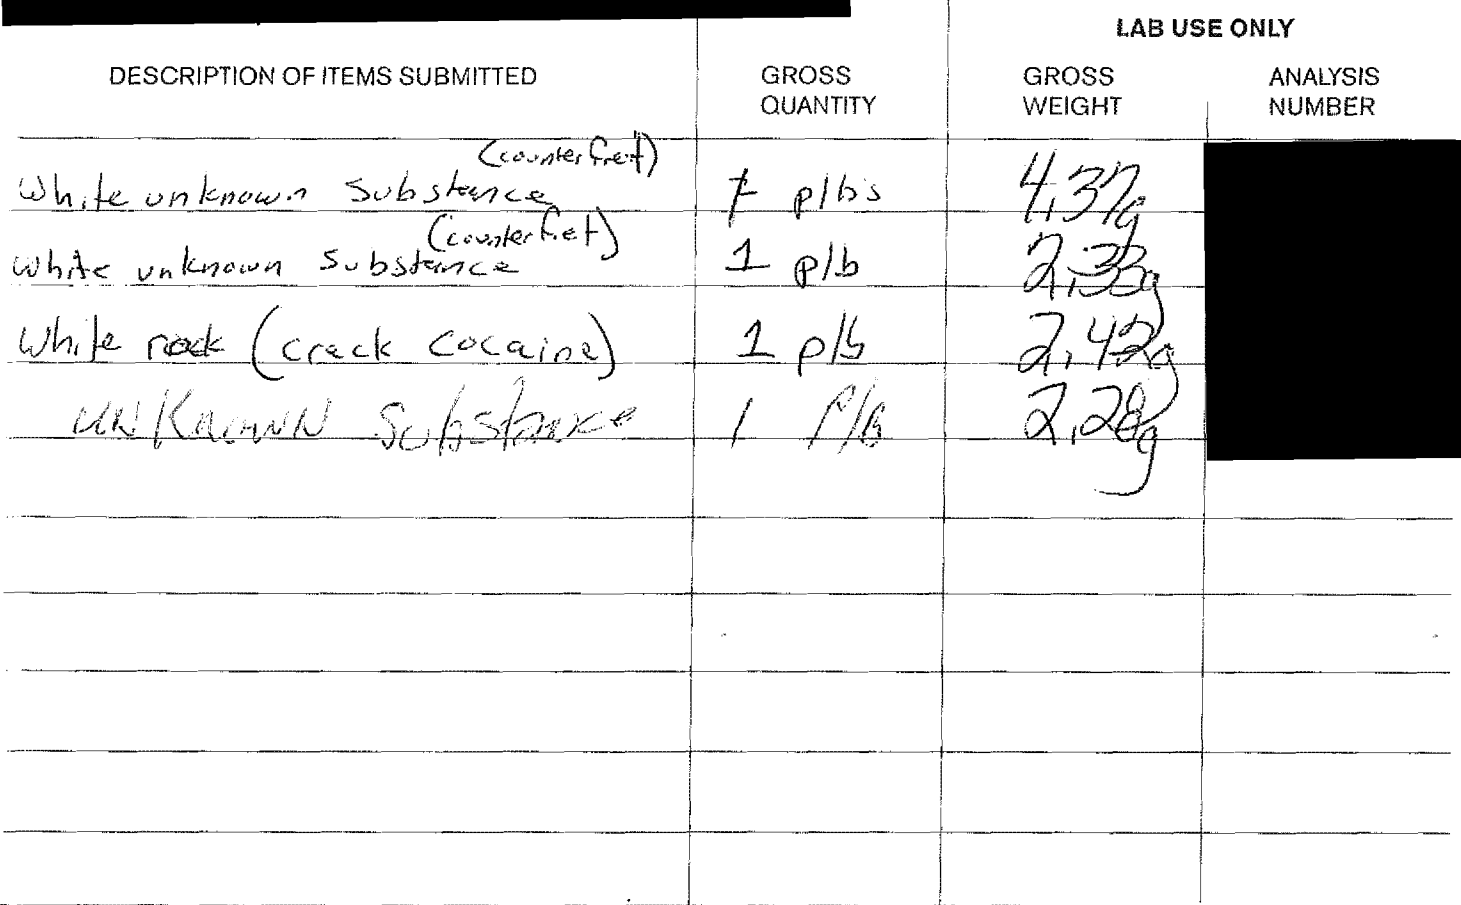 LAB USE ONLY
DESCRIPTION OF ITEMS SUBMITTED GROSS QUANTITY GROSS WEIGHT ANALYSIS NUMBER
(counterfreit)
White unknown Substance 7 p/bs 4.37g
(counterfiet)
White unknown Substance 1 p/b 2.33g
White rock (crack cocaine) 1 p/b 2.42g
UNKNOWN Substance 1 P/B 2.28g